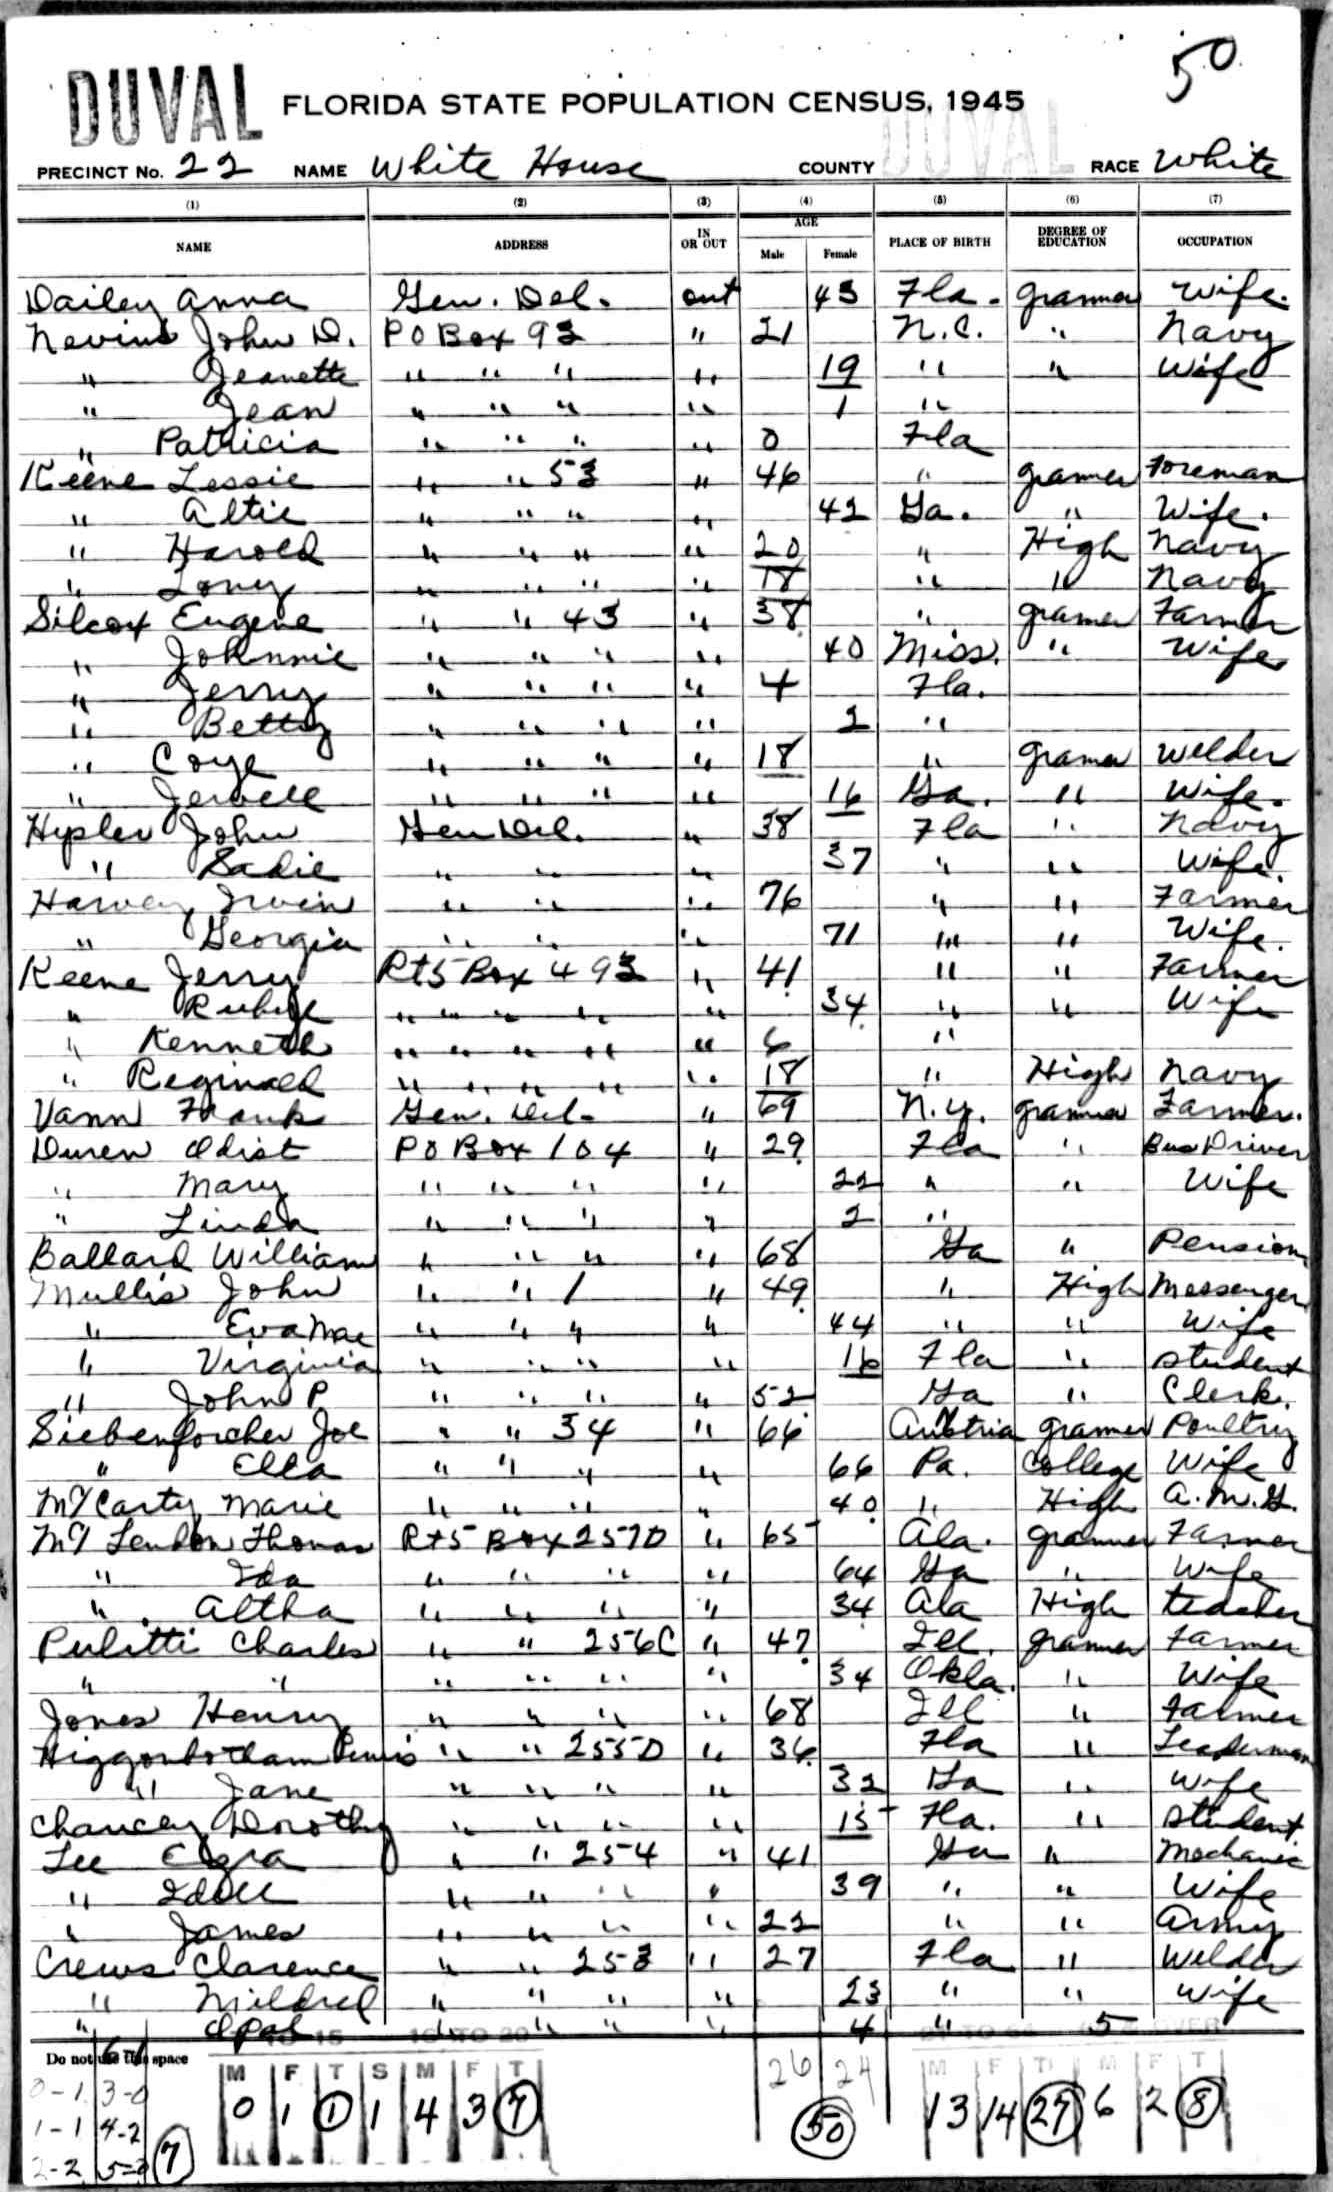 50
DUVAL FLORIDA STATE POPULATION CENSUS, 1945
PRECINCT No. 22 NAME White House COUNTY DUVAL RACE White
(1) (2) (3) (4) (5) (6) (7)
NAME ADDRESS IN OR OUT AGE Male Female PLACE OF BIRTH DEGREE OF EDUCATION OCCUPATION
Dailey Anna Gen. Del. out 43 Fla. Grammer Wife.
Nevins John D. PO Box 93 " 21 N.C. " Navy
" Jeanette " " " " 19 " " Wife
" Jean " " " " 1 "
" Patricia " " " " 0 Fla
Keene Lessie " " 53 " 46 " Grammer Foreman
" Altie " " " " 42 Ga. " Wife.
" Harold " " " " 20 " High Navy
" Loney " " " " 18 " " Navy
Silcox Eugene " " 43 " 38 " gramer Farmer
" Johnnie " " " " 40 Miss. " Wife
" Jerry " " " " 4 Fla.
" Betty " " " " 2 "
" Coye " " " " 18 " Gramer Welder
" Jewell " " " " 16 Ga. " Wife.
Hipler John Gen Del. " 38 Fla " Navy
" Sadie " " " 37 " " Wife.
Harvey Irvin " " " 76 " " Farmer
" Georgia " " " 71 " " Wife.
Keene Jerry Rt 5 Box 493 " 41 " " Farmer
" Rubye " " " " " 34 " " Wife
" Kenneth " " " " " 6 "
" Reginald " " " " " 18 " High Navy
Vann Frank Gen. Del. " 69 N.Y. grammer Farmer.
Duren Odist PO Box 104 " 29 Fla " Bus Driver
" Mary " " " " 22 " " Wife
" Linda " " " " 2 "
Ballard William " " " " 68 Ga " Pension
Mullis John " " 1 " 49 " High Messenger
" Eva Mae " " " " 44 " " Wife
" Virginia " " " " 16 Fla " student
" John P " " " " 52 Ga " Clerk.
Siebenforcher Joe " " 34 " 66 Austria grammer Poultry
" Ella " " " " 66 Pa. College Wife
McCarty Marie " " " " 40 " High A.M.G.
McLendon Thomas Rt 5 Box 257D " 65 Ala. grammer Farmer
" Ida " " " " 64 Ga " Wife
" Altha " " " " 34 Ala High teacher
Pulitti Charles " " 256C " 47 Ill. grammer Farmer
" " " " " " 34 Okla. " Wife
Jones Henry " " " " 68 Ill " Farmer
Higgonbotham " " 255D " 36 Fla " Leaderman
" Jane " " " " 32 Ga " Wife
Chancey Dorothy " " " " 15 Fla. " student.
Lee Ezra " " 254 " 41 Ga " Mechanic
" Idell " " " " 39 " " Wife
" James " " " " 22 " " Army
Crews Clarence " " 253 " 27 Fla " Welder
" Mildred " " " " 23 " " Wife
" Opal " " " " 4 " 5
Do not use this space
M F T S M F T 26 24 M F T M F T
0 1 1 1 4 3 7 50 13 14 27 6 2 8
0-1 3-0
1-1 4-2
2-2 5-0 7